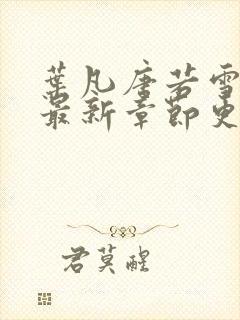 葉凡唐若雪
最新章節更
君莫醒